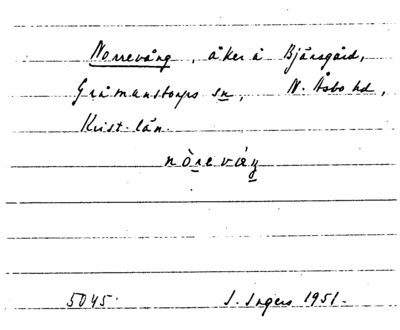 Norrevång, åker å Bjärsgård,
Gråmanstorps sn, N. Åsbo hd,
Krist. län.
nòrevá̱ŋ
5045. I. Ingers 1951.